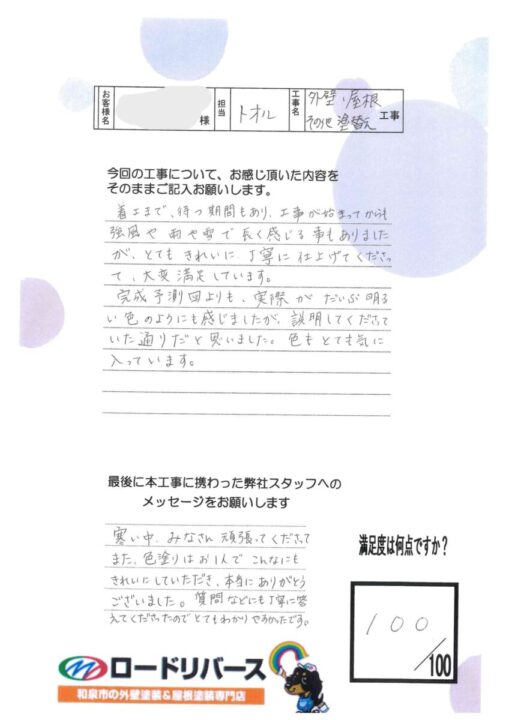 お客様名 様 担当 トオル 工事名 外壁・屋根 その他塗替え 工事
今回の工事について、お感じ頂いた内容を
そのままご記入お願いします。
着工まで、待つ期間もあり、工事が始まってからも
強風や雨や雪で長く感じる事もありました
が、とてもきれいに、丁寧に仕上げてくださっ
て、大変満足しています。
完成予測図よりも、実際がだいぶ明る
い色のようにも感じましたが、説明してくださって
いた通りだと思いました。色もとても気に
入っています。
最後に本工事に携わった弊社スタッフへの
メッセージをお願いします
寒い中、みなさん頑張ってくださって
また、色塗りはお1人でこんなにも
きれいにしていただき、本当にありがとう
ございました。質問などにも丁寧に答
えてくださったのでとてもわかりやすかったです。
満足度は何点ですか?
100
/100
ロードリバース
和泉市の外壁塗装&屋根塗装専門店